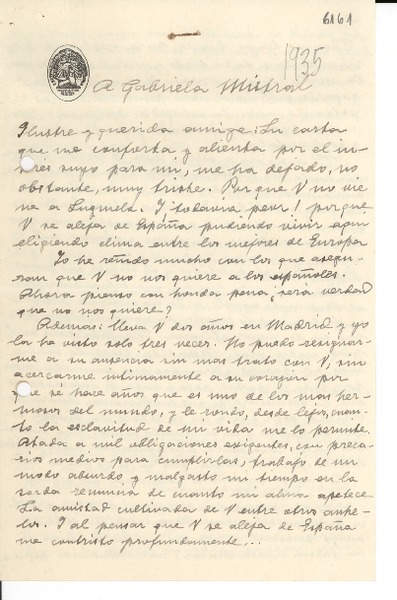 6161
1935
A Gabriela Mistral
Ilustre y querida amiga: Su carta
que me conforta y alienta por el in-
terés suyo para mi, me ha dejado, no
obstante, muy triste. Porque V no vie
ne a Luzmela. Y, ¡todavía peor! porque
V se aleja de España pudiendo vivir aqui
eligiendo clima entre los mejores de Europa
Yo he reñido mucho con los que asegu-
ran que V no nos quiere a los españoles.
Ahora pienso con honda pena ¿será verdad
que no nos quiere?
Ademas: lleva V dos años en Madrid y yo
la he visto solo tres veces. No puedo resignar-
me a su ausencia sin mas trato con V, sin
acercarme intimamente a su corazón por
que sé hace años que es uno de los mas her-
mosos del mundo, y le rondo, desde lejos, cuan-
to la esclavitud de mi vida me lo permite.
Atada a mil obligaciones exigentes, con preca-
rios medios para cumplirlas, trabajo de un
modo absurdo, y malgasto mi tiempo en la
sorda renuncia de cuanto mi alma apetece
La amistad cultivada de V entre otros anhe-
los. Y al pensar que V se aleja de España
me contristo profundamente...